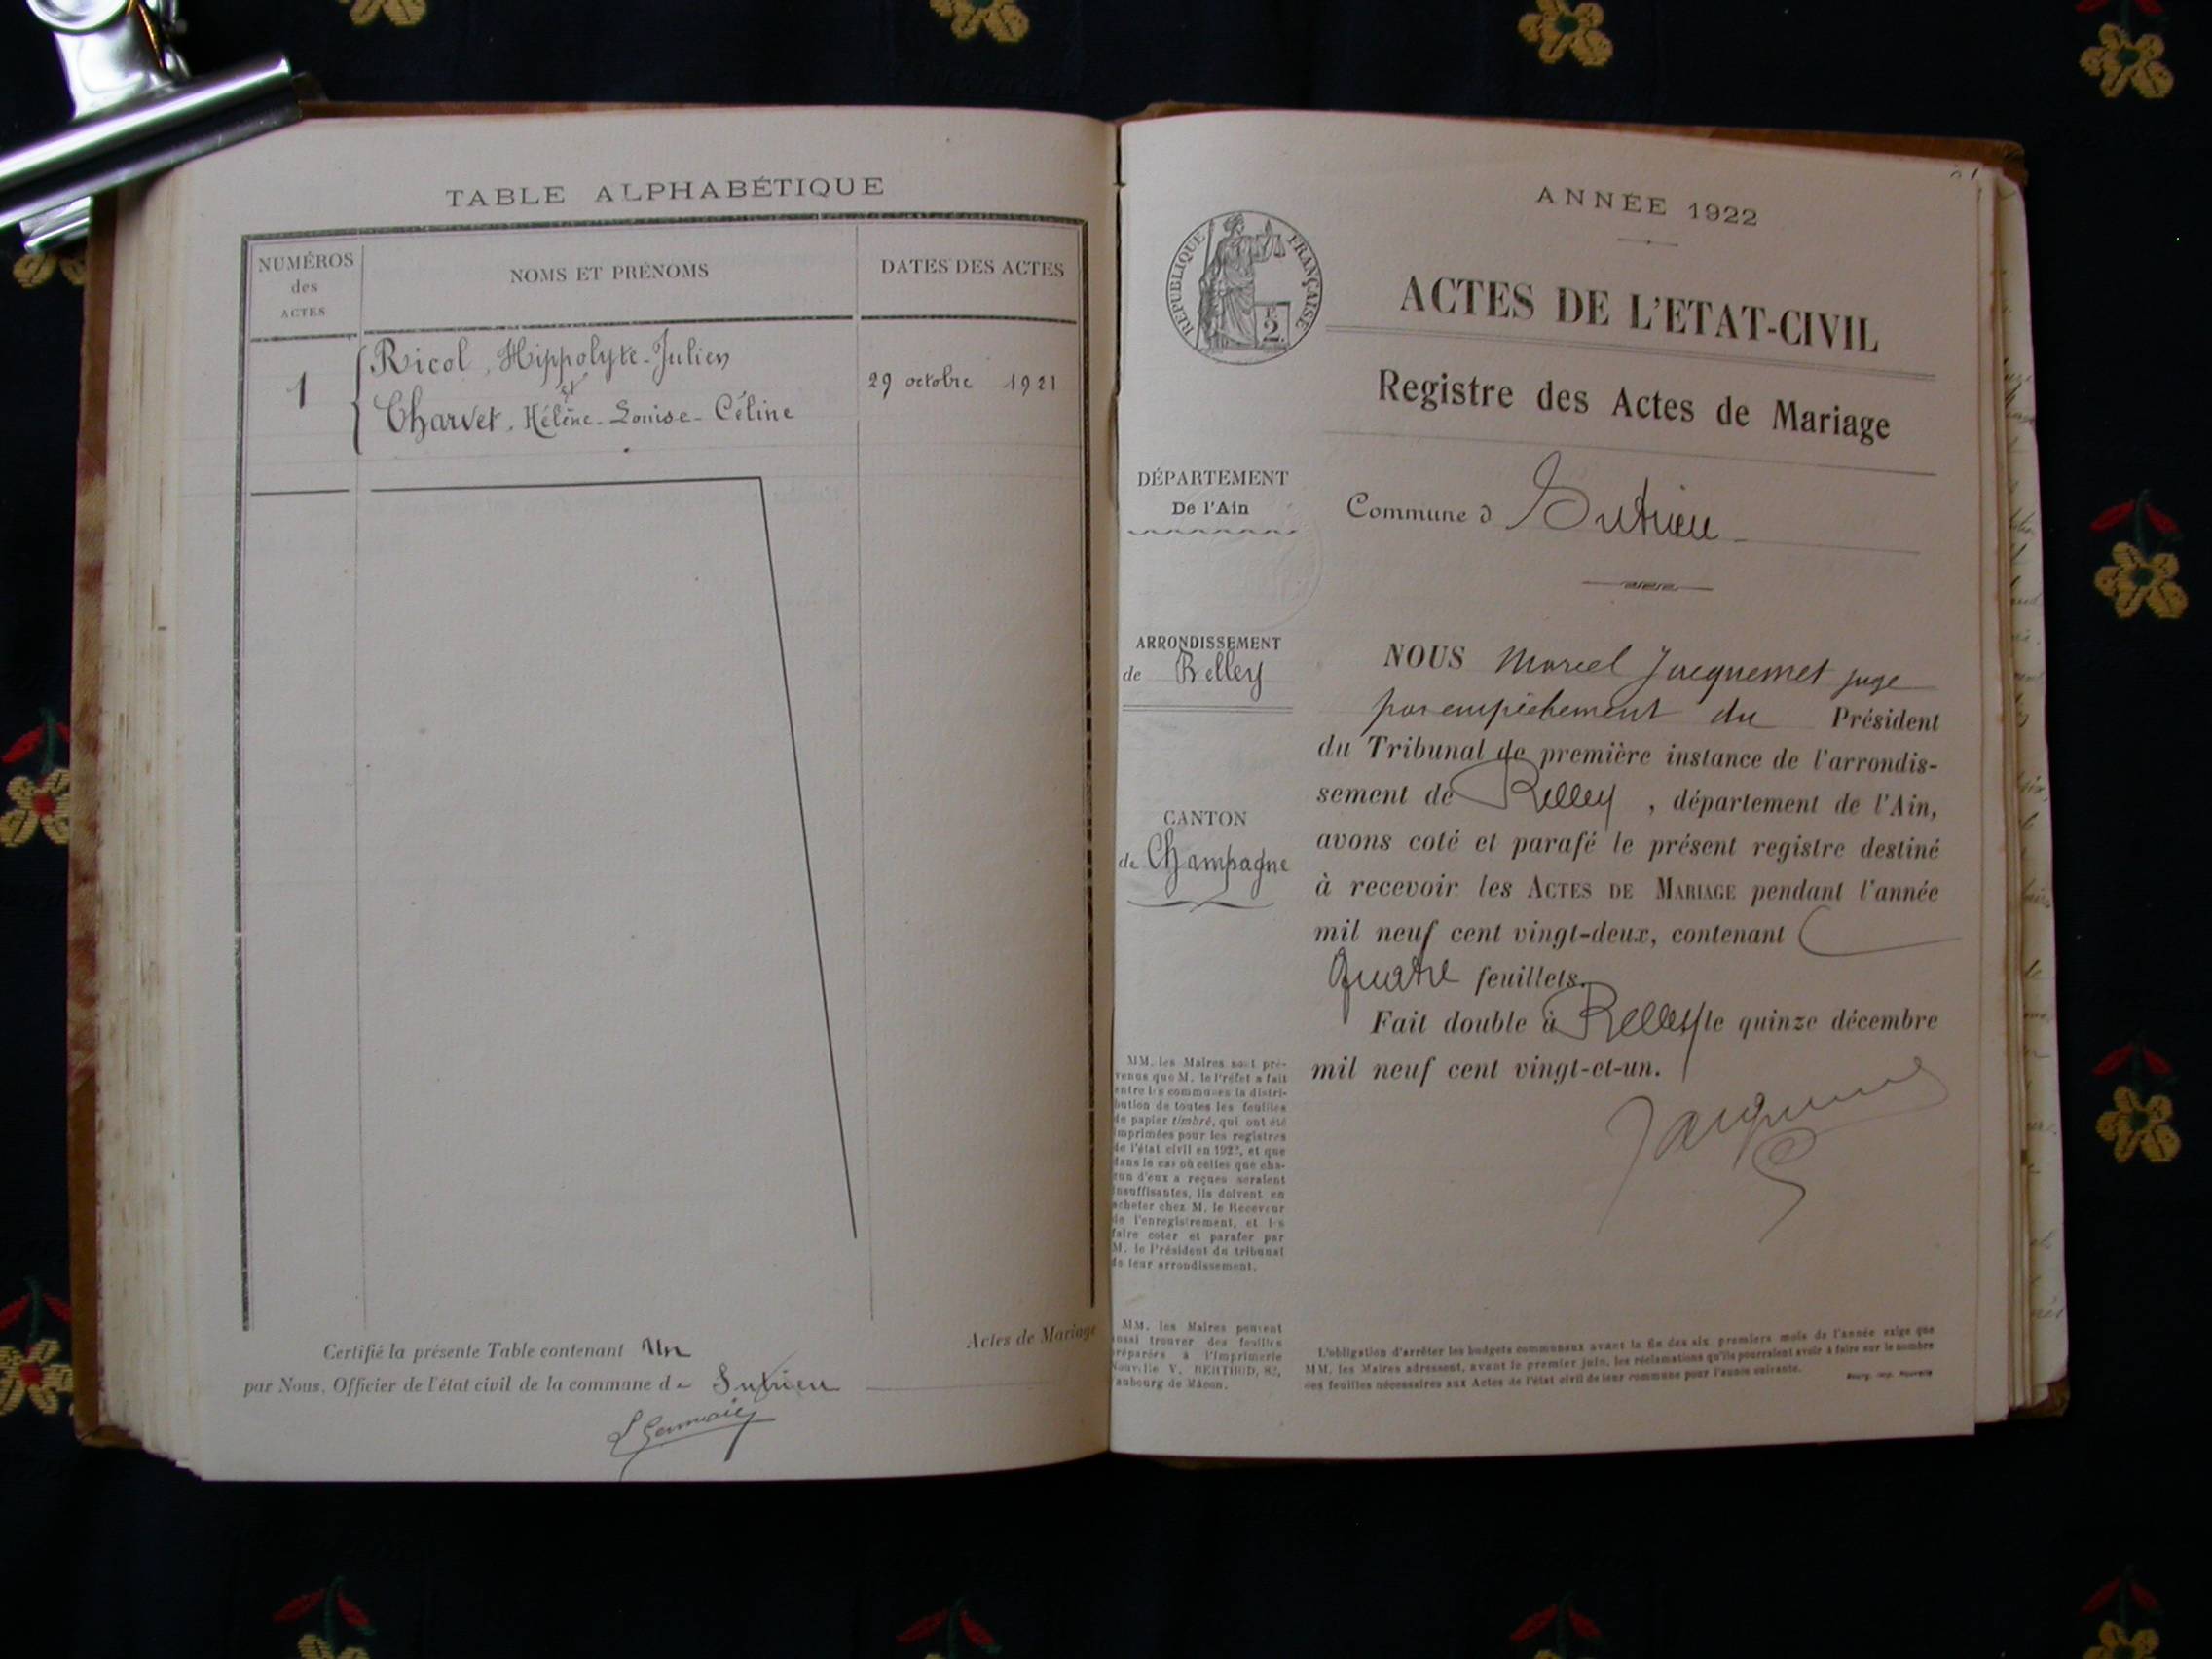 TABLE ALPHABÉTIQUE
NUMÉROS
des
ACTES
NOMS ET PRÉNOMS
DATES DES ACTES
1
Ricol, Hippolyte-Julien
et
Charvet, Hélène-Louise-Céline
29 octobre 1921
Certifié la présente Table contenant Un
Actes de Mariage
par Nous, Officier de l'état civil de la commune de Sutrieu
ANNÉE 1922
RÉPUBLIQUE FRANÇAISE
2
ACTES DE L'ETAT-CIVIL
Registre des Actes de Mariage
DÉPARTEMENT
De l'Ain
Commune d Sutrieu
ARRONDISSEMENT
de Belley
CANTON
de Champagne
NOUS Marcel Jacquemet juge
par empêchement du Président
du Tribunal de première instance de l'arrondis-
sement de Belley, département de l'Ain,
avons coté et parafé le présent registre destiné
à recevoir les ACTES DE MARIAGE pendant l'année
mil neuf cent vingt-deux, contenant
quatre feuillets.
Fait double à Belley le quinze décembre
mil neuf cent vingt-et-un.
MM. les Maires sont pré-
venus que M. le Préfet a fait
entre les communes la distri-
bution de toutes les feuilles
de papier timbré, qui ont été
imprimées pour les registres
de l'état civil en 192², et que
dans le cas où celles que cha-
cun d'eux a reçues seraient
insuffisantes, ils doivent en
acheter chez M. le Receveur
de l'enregistrement, et les
faire coter et parafer par
M. le Président du tribunal
de leur arrondissement.
MM. les Maires peuvent
aussi trouver des feuilles
préparées à l'Imprimerie
Nouvelle V. BERTHOD, 82,
faubourg de Mâcon.
L'obligation d'arrêter les budgets communaux avant la fin des six premiers mois de l'année exige que
MM. les Maires adressent, avant le premier juin, les réclamations qu'ils pourraient avoir à faire sur le nombre
des feuilles nécessaires aux Actes de l'état civil de leur commune pour l'année suivante.
Bourg, imp. Nouvelle